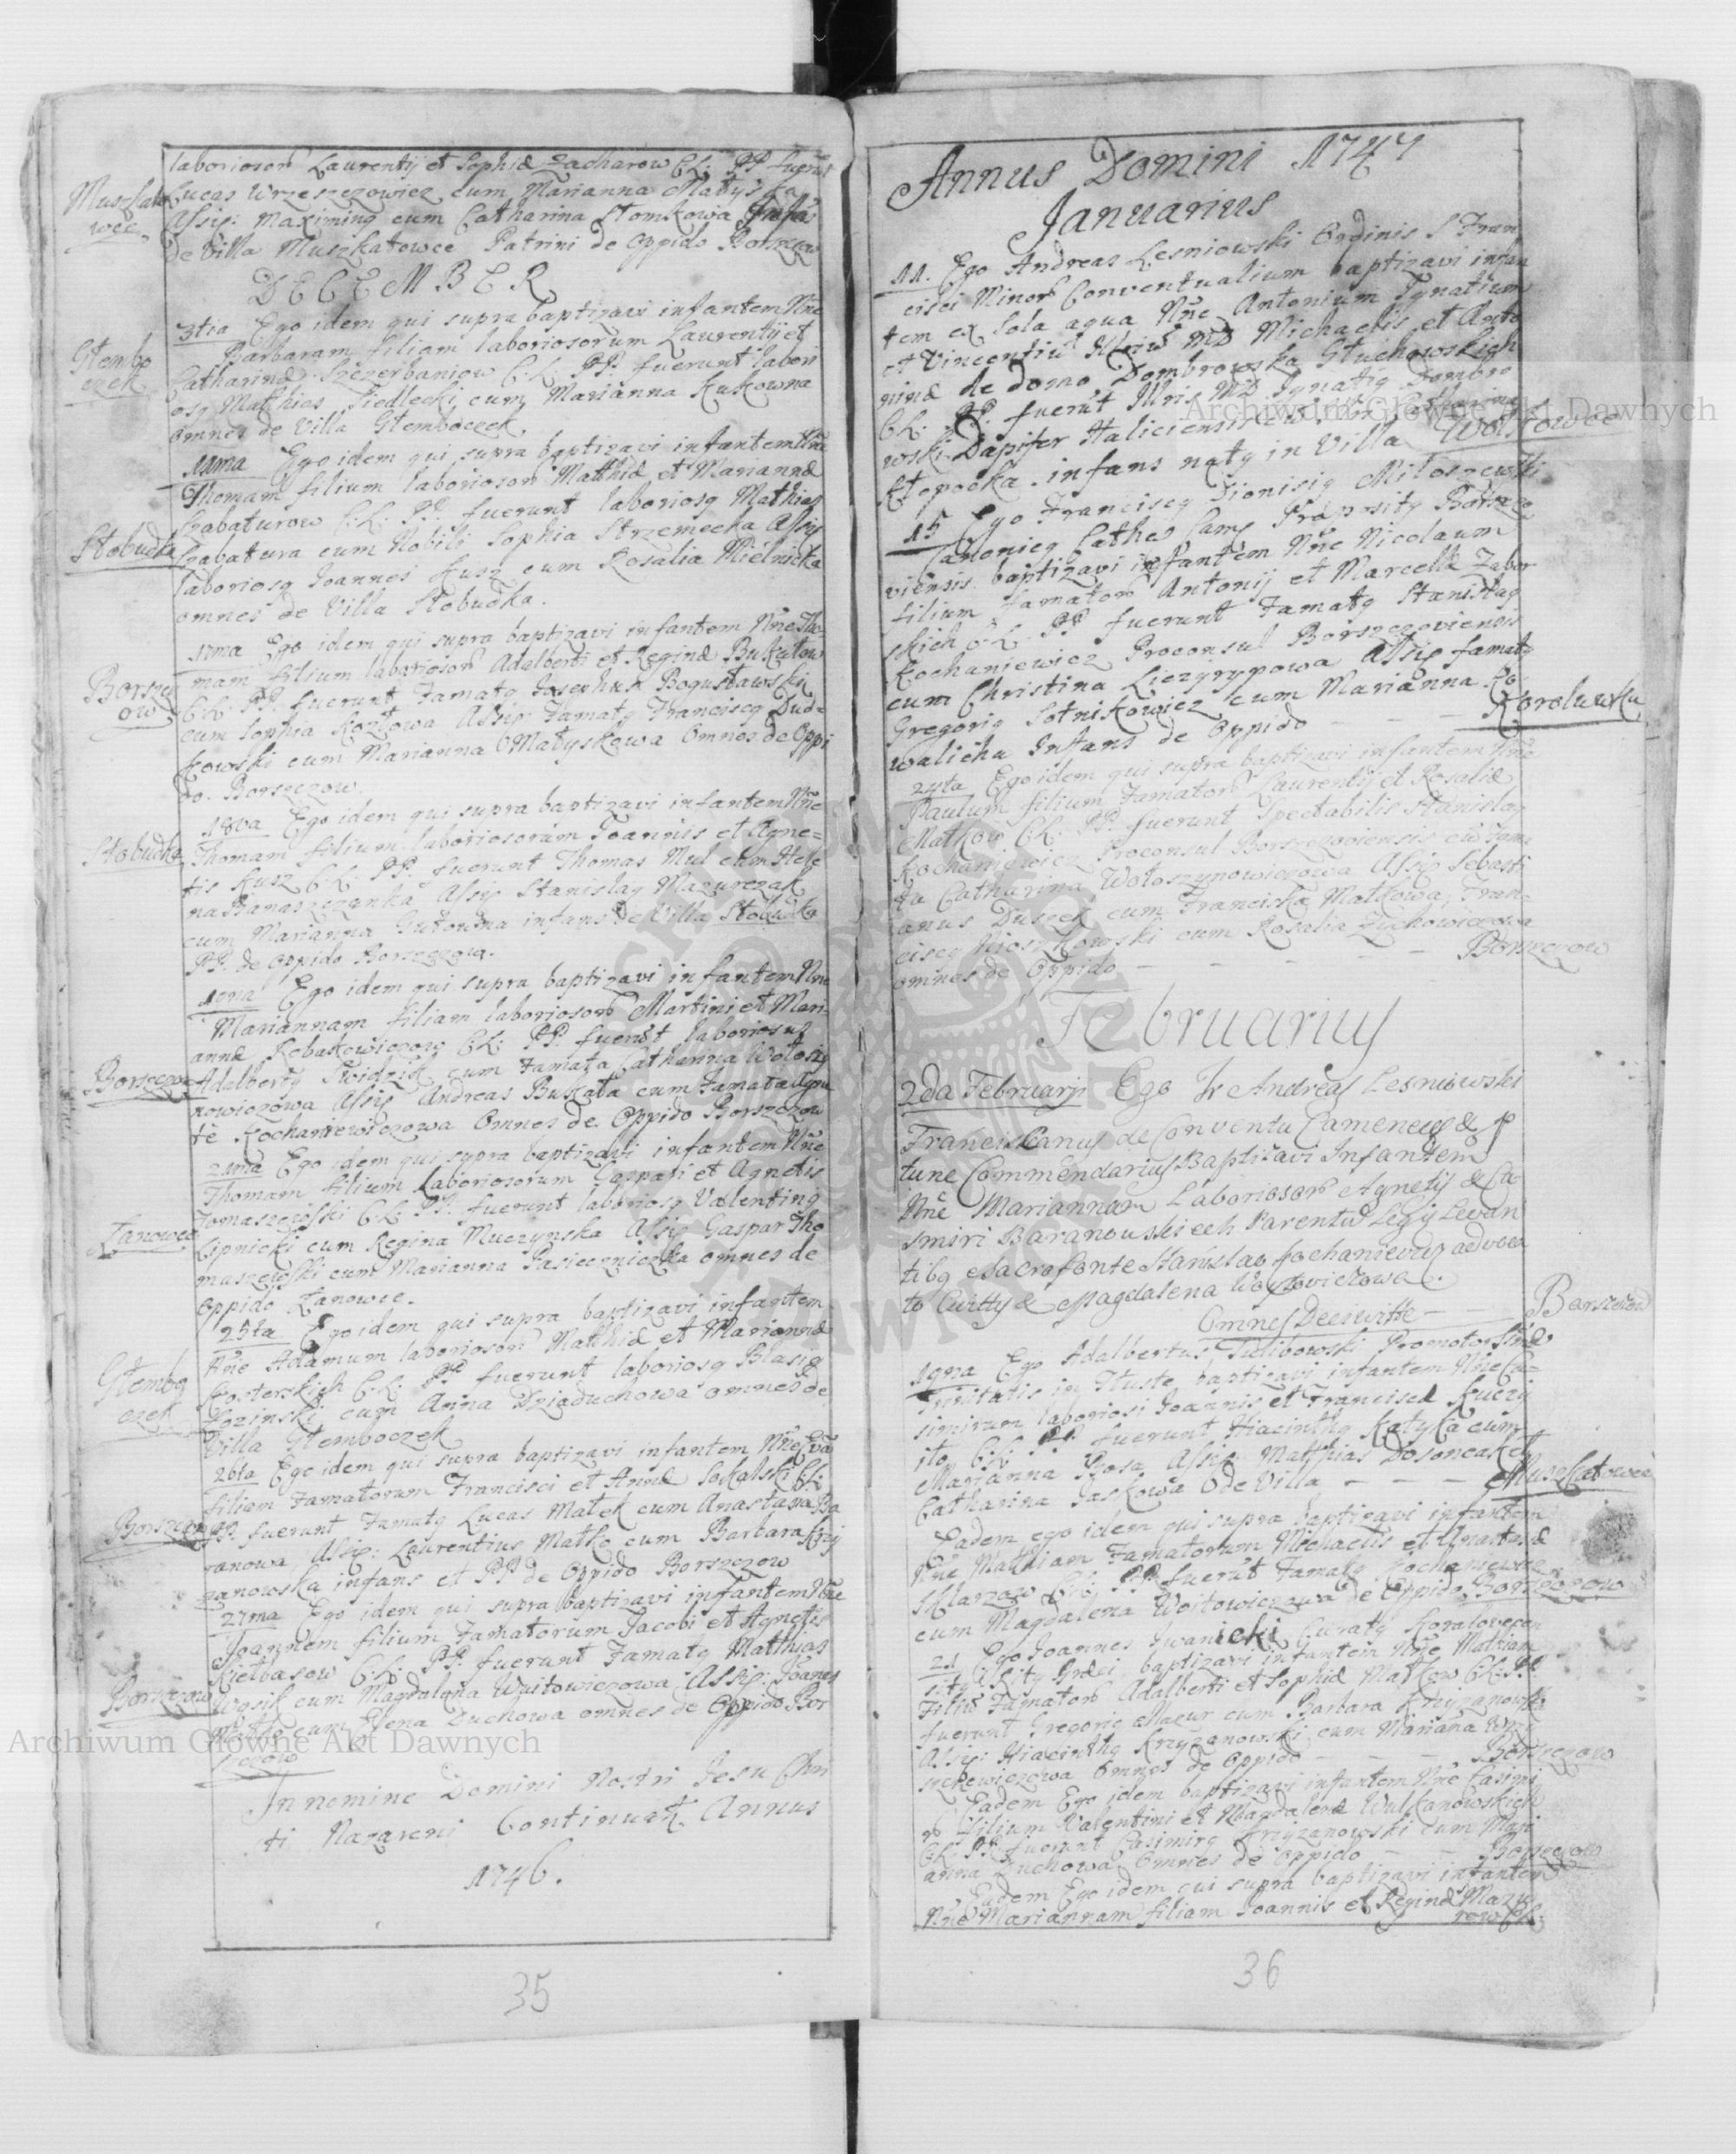 laboriosor Laurentij et Sophiæ Zacharow C:L: PP fuerunt
Muszkato
wce
Lucas Wrzeszczowicz cum Marianna Matyska
Assis: Maximinq cum Catharina Słomkowa Infas
de Villa Muszkatowce Patrini de Oppido Borszczow
DECEMBER
3tia Ego idem qui supra baptizavi infantem Nñe
Głembo
czek
Barbaram filiam laboriosorum Laurentij et
Catharinæ Szczerbaniow C:L: PP. fuerunt labori
osq Matthias Siedlecki cum Marianna Kukowna
omnes de Villa Głemboczek
11ma Ego idem qui supra baptizavi infantem Nñe
Thomam filium laboriosor Matthiæ et Mariannæ
Słobudka
Szabaturow C:L: PP. fuerunt laboriosq Mathias
Szabatura cum Nobili Sophia Strzemecka Assis
laboriosq Joannes Kusz cum Rosalia Mielnicka
omnes de Villa Słobudka.
17ma Ego idem qui supra baptizavi infantem Nñe Tho
Borszcz
ow
mam filium laboriosor Adalberti et Reginæ Bukatow
C:L: PP. fuerunt Famatq Josephus Bogusławski
cum Sophia Kozłowa Assis: Famatq Franciscq Dud=
kowski cum Marianna Matyskowa Omnes de Oppi
do. Borszczow.
18va Ego idem qui supra baptizavi infantem Nñe
Słobudka
Thomam filium laboriosorum Joannis et Agne=
tis Kusz C:L: PP. fuerunt Thomas Mul cum Hele
na Banaszczanka Assis Stanislaq Mazurczak
cum Marianna infans de Villa Słobudka
PP. de Oppido Borszczow.
19na Ego idem qui supra baptizavi infantem Nñe
Mariannam filiam laboriosor Martini et Mari=
annæ Rebakowiczow C:L: PP. fuerut laboriosus
Borszczow
Adalbertq cum Famata Catharina Wołoszy
nowiczowa Assis Andreas Bukata cum Famata Agne
te Kochaniewiczowa Omnes de Oppido Borszczow
21ma Ego idem qui supra baptizavi infantem Nñe
Thomam filium Laboriosorum Caspari et Agnetis
Łanowce
Tomaszewski C:L: PP. fuerunt laboriosq Valentinq
Lipnicki cum Regina Muczynska Assis Gaspar Tho
maszewski cum Marianna Pasieczniczka omnes de
Oppido Łanowce.
25ta Ego idem qui supra baptizavi infantem
Nñe Adamum laboriosor Matthiæ et Mariannæ
Głembo
czek
Kosterskich C:L: PP. fuerunt laboriosq Blasiq
Łozinski cum Anna Dziaduchowa omnes de
Villa Głemboczek
26ta Ego idem qui supra baptizavi infantem Nñe Eva
filiam Famatorum Francisci et Annæ Sokalski C:L:
Borszczow
PP. fuerunt Famatq Lucas Matek cum Anastasia Ba
ranowa, Assis: Laurentius Matko cum Barbara Krzy
zanowska infans et PP de Oppido Borszczow
27ma Ego idem qui supra baptizavi infantem Nñe
Joannem filium Famatorum Jacobi et Agnetis
Kiełbasow C:L: PP. fuerunt Famatq Matthias
Borszczow
Wosik cum Magdalena Wuitowiczowa Assis: Joanes
Matko cum Elena Zuchowa omnes de Oppido Bor
szczow
In nomine Domini Nostri Jesu Chri
sti Nazareni Continuat Annus
1746.
35
Annus Domini 1747
Januarius
11. Ego Andreas Lesniowski Ordinis S Fran
cisci Minor Conventualium baptizavi infan
tem ex sola aqua Nñe Antonium Ignatium
et Vincentiu filiu MD Michaelis et Anto
ninæ de domo Dombrowska Głuchowskich
C:L: PP. fuerut Illris MD Ignatiq Dombro
wski Dapifer Haliciensis
Kłopocka. infans natq in Villa Wołkowce
15 Ego Franciscq Dionisiq Miłoszewski
Canonicq Cathes Came Præpositq Borszczo
viensis baptizavi infantem Nñe Nicolaum
filium Famator Antonij et Marcellæ Zabor
skich C:L: PP fuerunt Famatq Stanisłaq
Kochaniewicz Proconsul Borszczoviensis
cum Christina Liczyrypowa Assis famatq
Gregoriq Sotnikowicz cum Marianna Ko
walicha Infans de Oppido – – – Korolowku
24ta Ego idem qui supra baptizavi infantem Nñe
Paulum filium Famator Laurentij et Rosaliæ
Matkow C:L: PP. fuerunt Spectabilis Stanislaq
Kochaniewicz Proconsul Borszczoviensis cu fama
ta Catharina Wołoszynowiczowa Assis Sebasti
anus Duszek cum Franciska Matkowa, Fran=
ciscq Nioszkowski cum Rosalia Zychowiczowa
omnes de Oppido – – – – – Borszczow
Februarius
2da Februarij Ego Fr Andreas Lesniowski
Franciscanus de Conventu Camenecij & P
tunc Commendarius Baptizavi Infantem
Nñe Mariannam Laboriosor Agnetis & Ca
smiri Baranowskiech Parentu Legij Levan
tibq e Sacro fonte Stanislao Kochaniewicz advoca
to Civitty & Magdalena Woytowiczowa.
Omnes De Civitte – Borszczow
19na Ego Adalbertus Tulibowski Promotor SSmæ
Trinitatis in Tłuste baptizavi infantem Nñe Ca=
simirum laboriosi Joannis et Franciscæ Kuczy
ito C:L: PP. fuerunt Hiacinthq Katyka cum
Marianna Rosa Assis: Matthias Dosoncak et
Catharina Jaskowa O de Villa – – – Muszkatowce
Eadem ego idem qui supra baptizavi infantem
Nñe Mathiam Famatorum Michaelis et Anastasiæ
Sklarzow C:L: PP fuerut Famatq Kochaniewicz
cum Magdalena Woitowiczowa de Oppido Borszczow
21 Ego Joannes Iwanicki Curatq Korolovecen
sitq Ritq Græci baptizavi infantem Nñe Mathiam
Filiu Famator Adalberti et Sophiæ Matkow C:L: PP.
fuerunt Gregoriq Mazur cum Barbara Krzyzanowska
Assis: Hiacinthq Krzyzanowski cum Mariana Wrzy
szczewiczowa Omnes de Oppido – – – Borszczow
Eadem Ego idem baptizavi infantem Nñe Casimi
r Filium Valentini et Magdalenæ Wulkanowskich
C:L: PP. fuerunt Casimirq Krzyzanowski cum Mari
anna Zuchowa Omnes de Oppido – – Borszczow
Eadem Ego idem qui supra baptizavi infantem
Nñe Mariannam filiam Joannis et Reginæ Mazu
row C:L:
36
Archiwum Główne Akt Dawnych
Archiwum Główne Akt Dawnych